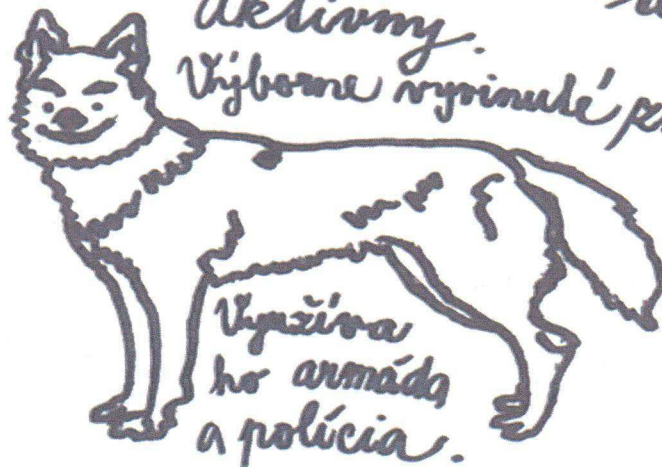 aktívny.
Výborne vyvinuté
Využíva
ho armáda
a polícia.